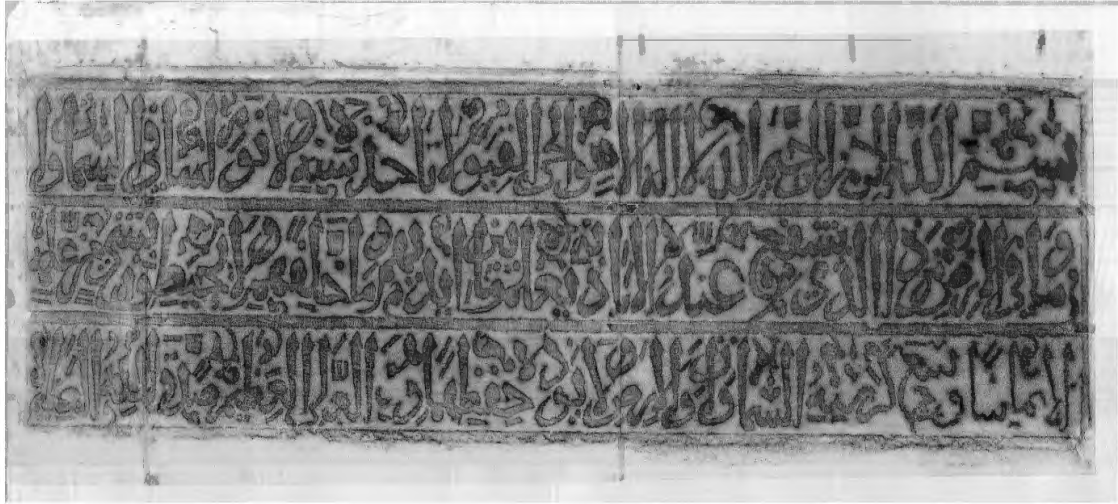 بسم الله الرحمن الرحيم الله لا اله الا هو الحي القيوم لا تاخذه سنة ولا نوم له ما في السموات و
ما في الارض من ذا الذي يشفع عنده الا باذنه يعلم ما بين ايديهم وما خلفهم ولا يحيطون بشيء من علمه
الا بما شاء وسع كرسيه السموات والارض ولا يؤده حفظهما وهو العلي العظيم